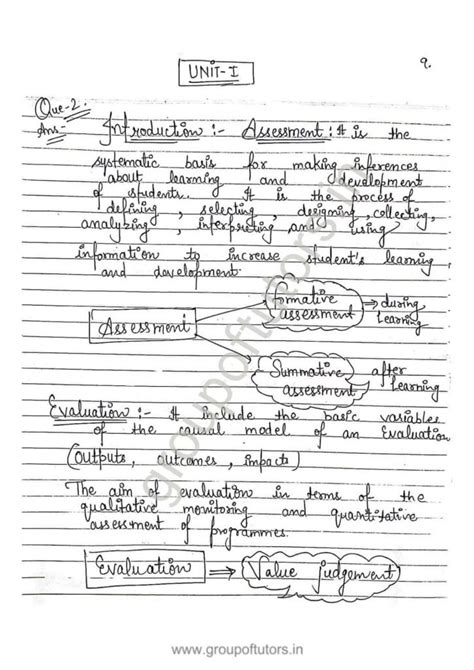 9.
UNIT-I
Que-2.
Ans- Introduction :- Assessment : It is the
systematic basis for making inferences
about learning and development
of students. It is the process of
defining, selecting, designing, collecting,
analyzing, interpreting and using
information to increase student's learning
and development.
formative
assessment ⇒ during
learning
Assessment
Summative after
assessment learning
Evaluation :- It include the basic variables
of the causal model of an Evaluation
(outputs, outcomes, impacts)
The aim of evaluation in terms of the
qualitative monitoring and quantitative
assessment of programmes.
Evaluation ⇒ Value judgement
groupoftutors.in
www.groupoftutors.in